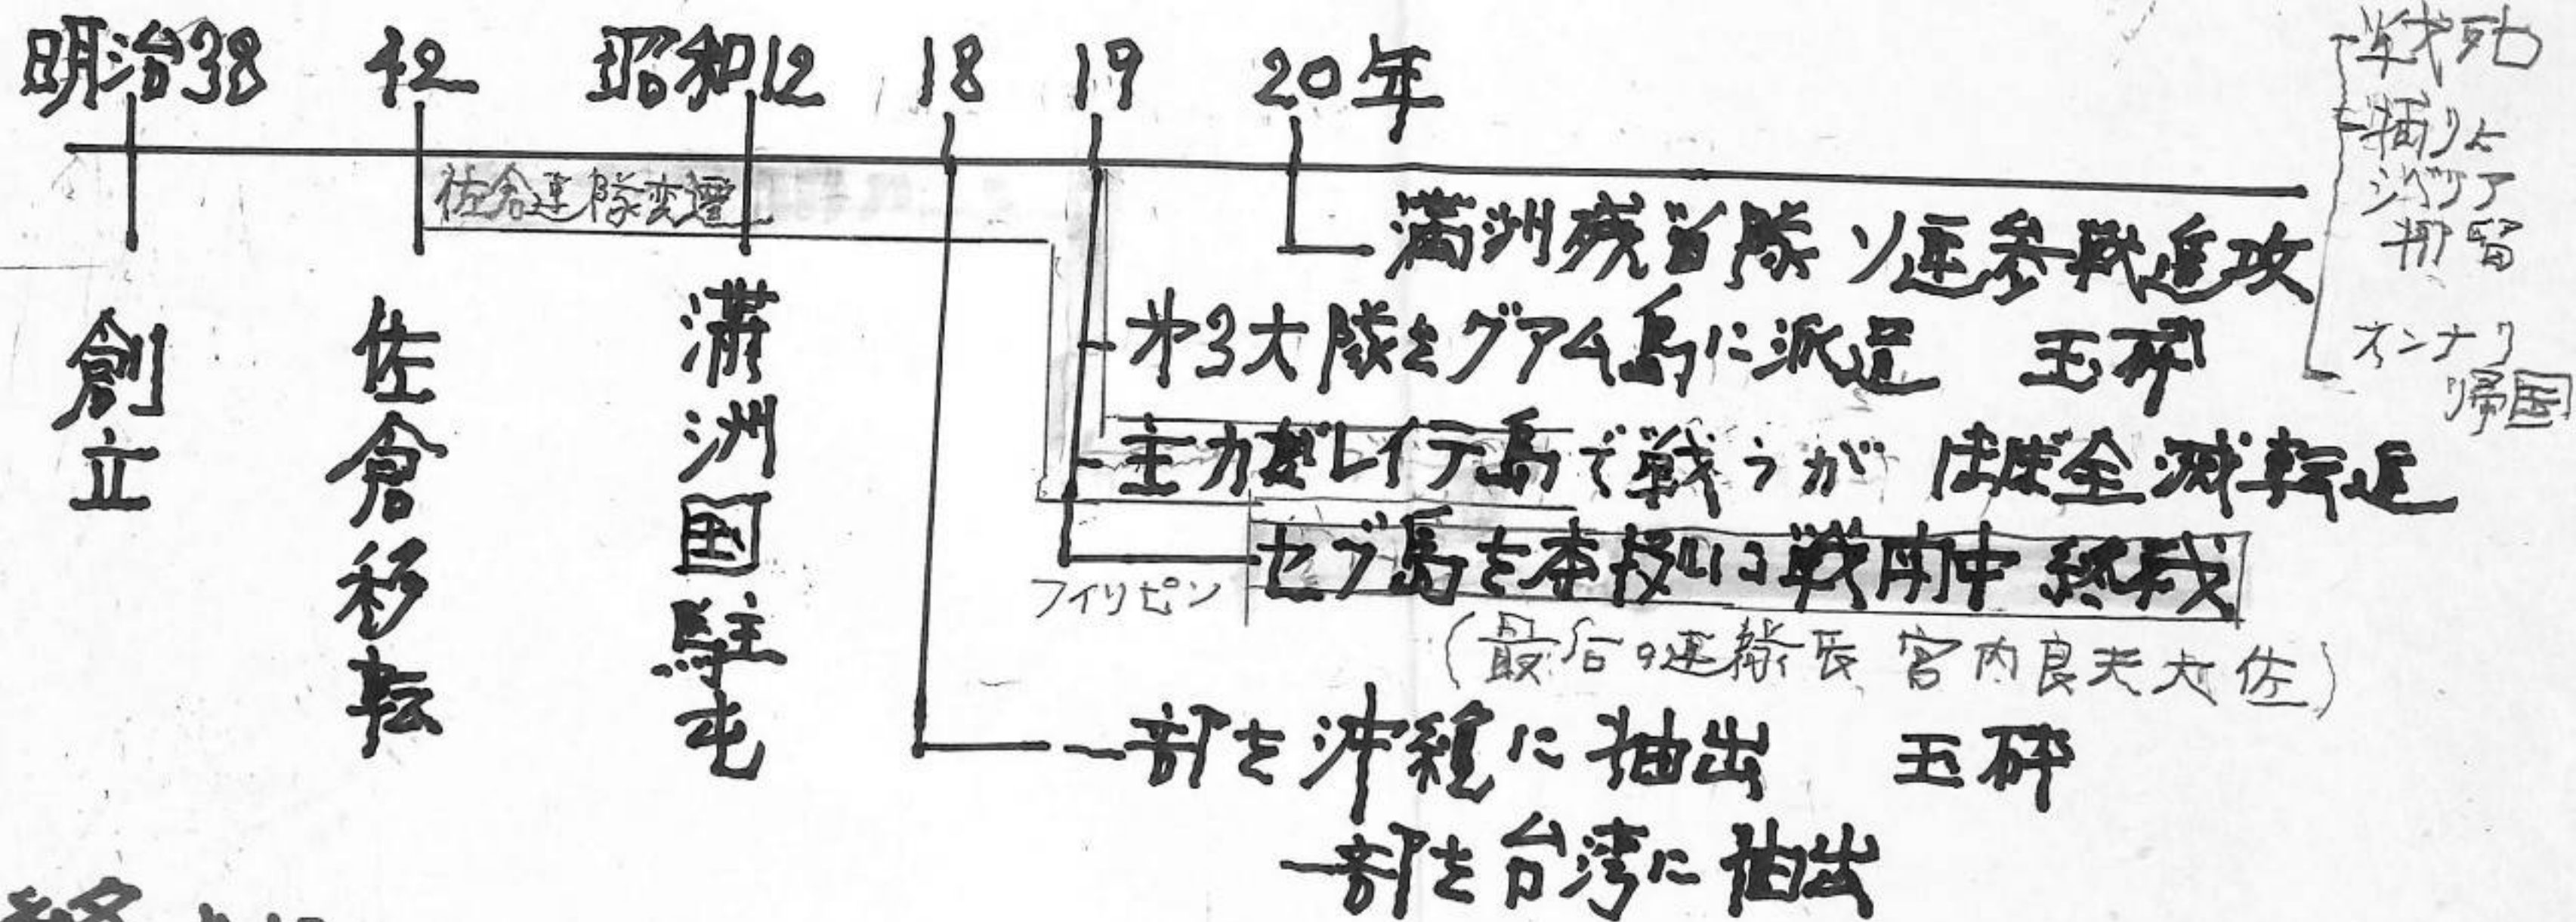 明治38 42 昭和12 18 19 20年
佐倉連隊変遷
創立
佐倉移転
満洲国駐屯
満洲残留隊 ソ連参戦進攻
戦死
捕りよ
シベリア
抑留
オンナリ
帰国
才3大隊をグアム島に派遣 玉砕
主力がレイテ島で戦うが ほぼ全滅転進
フィリピン
セブ島を本拠に戦闘中 終戦
(最后の連隊長 宮内良夫大佐)
一部を沖縄に抽出 玉砕
一部を台湾に抽出